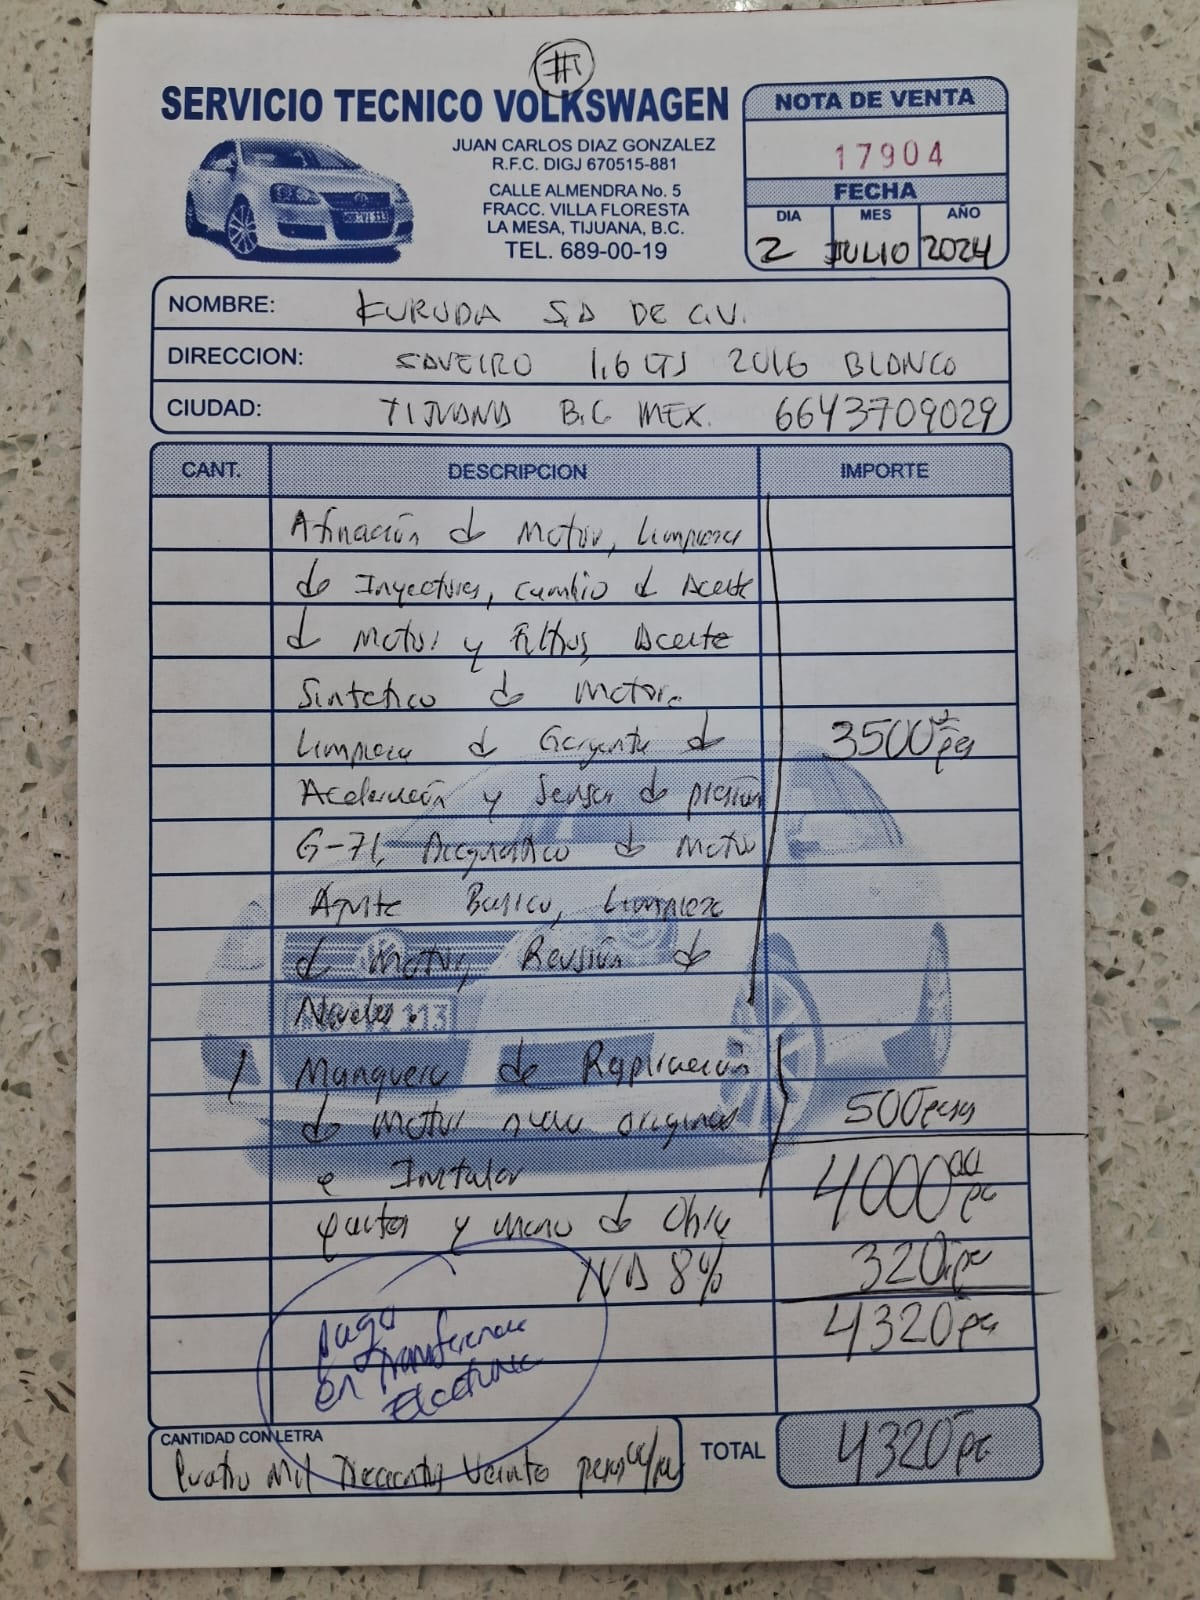 #1
SERVICIO TECNICO VOLKSWAGEN
JUAN CARLOS DIAZ GONZALEZ
R.F.C. DIGJ 670515-881
CALLE ALMENDRA No. 5
FRACC. VILLA FLORESTA
LA MESA, TIJUANA, B.C.
TEL. 689-00-19
NOTA DE VENTA
17904
FECHA
DIA MES AÑO
2 JULIO 2024
NOMBRE: KURODA S.A DE C.V.
DIRECCION: SAVEIRO 1.6 LTS 2016 BLANCO
CIUDAD: TIJUANA B.C MEX. 6643709029
CANT. DESCRIPCION IMPORTE
Afinación de Motor, Limpieza
de Inyectores, cambio d Aceite
d Motor y Filtros, Aceite
Sintetico de Motor.
Limpieza d Garganta d 3500
Aceleración y Sensor de presión
G-71, Diagnostico d Motor
Ajuste Basico, Limpieza
d Motor, Revisión de
Niveles.
1 Manguera de Replicación
de motor nueva original 500 pesos
e Instalar 4000
partes y mano de Obra
IVA 8% 320
4320
pago
en transferencia
Electronica
CANTIDAD CON LETRA
Cuatro Mil Trecientos Veinte pesos
TOTAL 4320